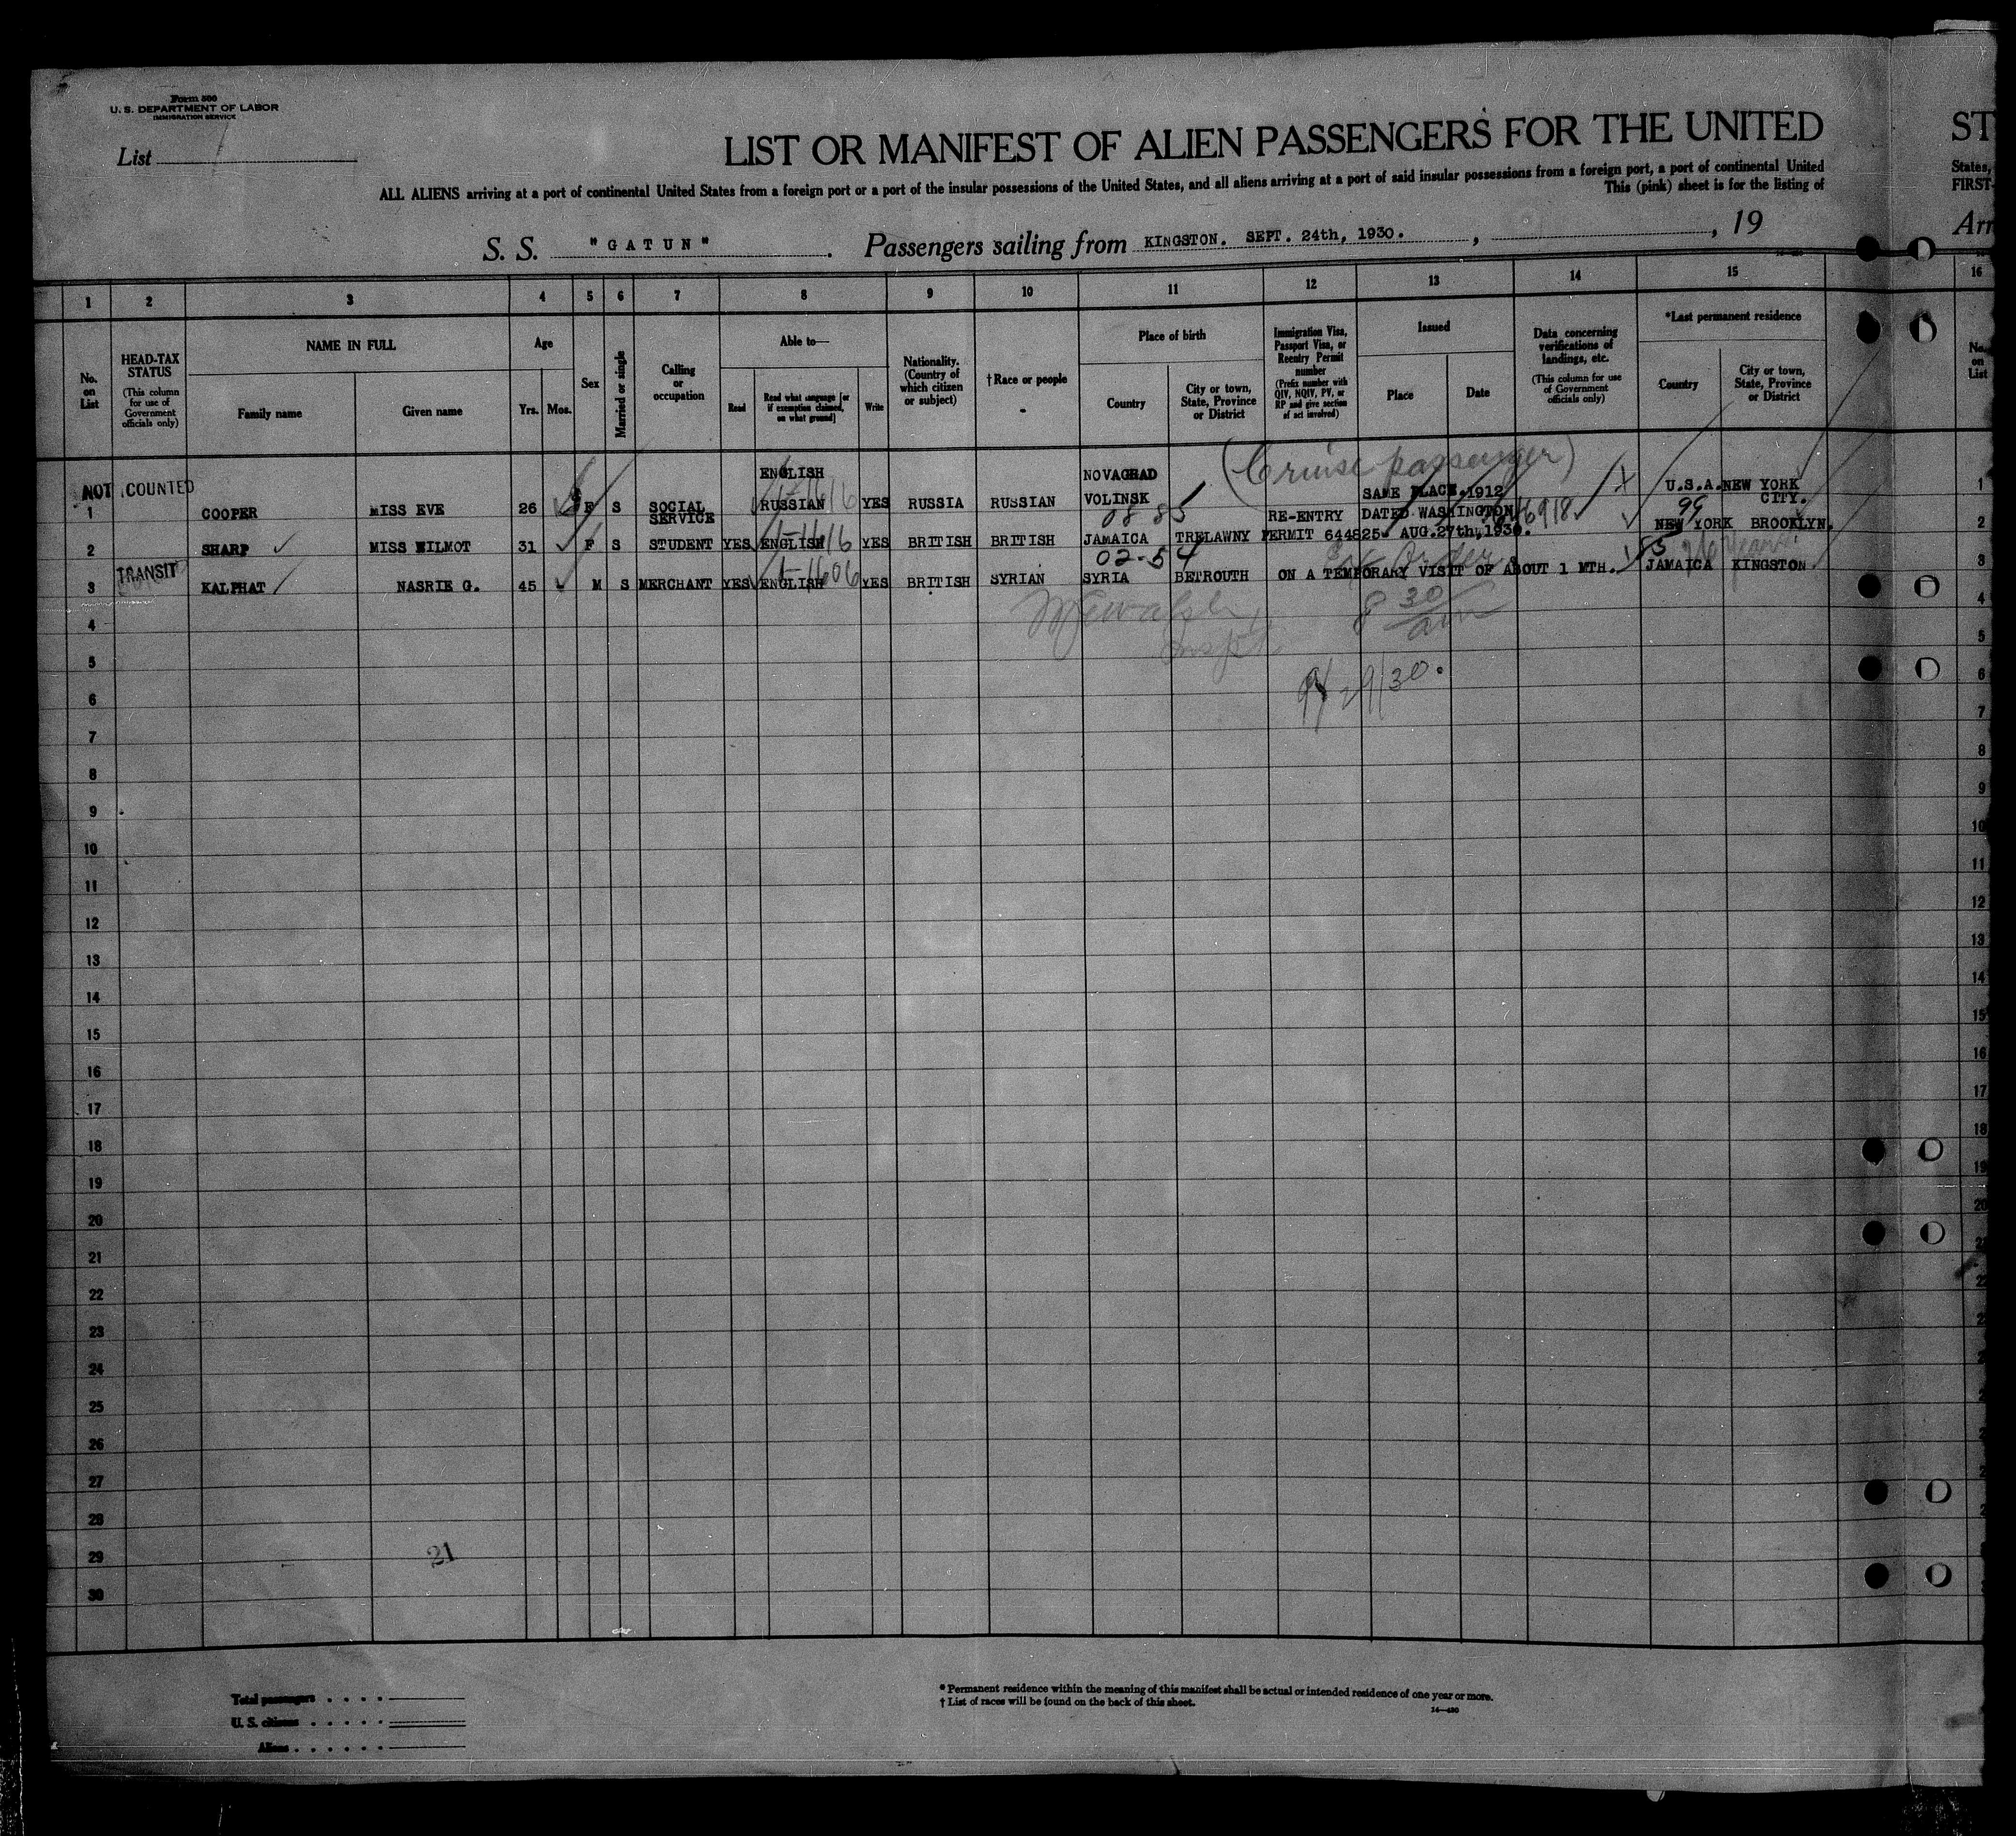 Form 500
U. S. DEPARTMENT OF LABOR
IMMIGRATION SERVICE
List
LIST OR MANIFEST OF ALIEN PASSENGERS FOR THE UNITED
ST
ALL ALIENS arriving at a port of continental United States from a foreign port or a port of the insular possessions of the United States, and all aliens arriving at a port of said insular possessions from a foreign port, a port of continental United
States,
This (pink) sheet is for the listing of
FIRST-
S. S. "GATUN". Passengers sailing from KINGSTON. SEPT. 24th, 1930. , , 19
Arr
1 2 3 4 5 6 7 8 9 10 11 12 13 14 15 16
No. on List
HEAD-TAX STATUS
(This column for use of Government officials only)
NAME IN FULL
Family name
Given name
Age
Yrs. Mos.
Sex
Married or single
Calling or occupation
Able to—
Read
Read what language [or if exemption claimed, on what ground]
Write
Nationality. (Country of which citizen or subject)
†Race or people
Place of birth
Country
City or town, State, Province or District
Immigration Visa, Passport Visa, or Reentry Permit number
(Prefix number with QIV, NQIV, PV, or RP and give section of act involved)
Issued
Place
Date
Data concerning verifications of landings, etc.
(This column for use of Government officials only)
*Last permanent residence
Country
City or town, State, Province or District
No. on List
(Cruise passenger)
NOT COUNTED
1 COOPER MISS EVE 26 F S SOCIAL SERVICE ENGLISH RUSSIAN YES RUSSIA RUSSIAN NOVAGRAD VOLINSK SAME PLACE. 1912 U.S.A. NEW YORK CITY. 1
08 85
99
2 SHARP MISS WILMOT 31 F S STUDENT YES ENGLISH YES BRITISH BRITISH JAMAICA TRELAWNY RE-ENTRY PERMIT 644825. DATED WASHINGTON AUG. 27th, 1930. NEW YORK BROOKLYN. 2
02-54
85
TRANSIT
3 KALPHAT NASRIE G. 45 M S MERCHANT YES ENGLISH YES BRITISH SYRIAN SYRIA BEIROUTH ON A TEMPORARY VISIT OF ABOUT 1 MTH. JAMAICA KINGSTON 3
8 30 am
4 4
5 5
9/29/30.
6 6
7 7
8 8
9 9
10 10
11 11
12 12
13 13
14 14
15 15
16 16
17 17
18 18
19 19
20 20
21
22
23
24
25
26
27
28
29
21
30
Total passengers . . . .
U. S. citizens . . . . .
Aliens . . . . . .
* Permanent residence within the meaning of this manifest shall be actual or intended residence of one year or more.
† List of races will be found on the back of this sheet.
14—430